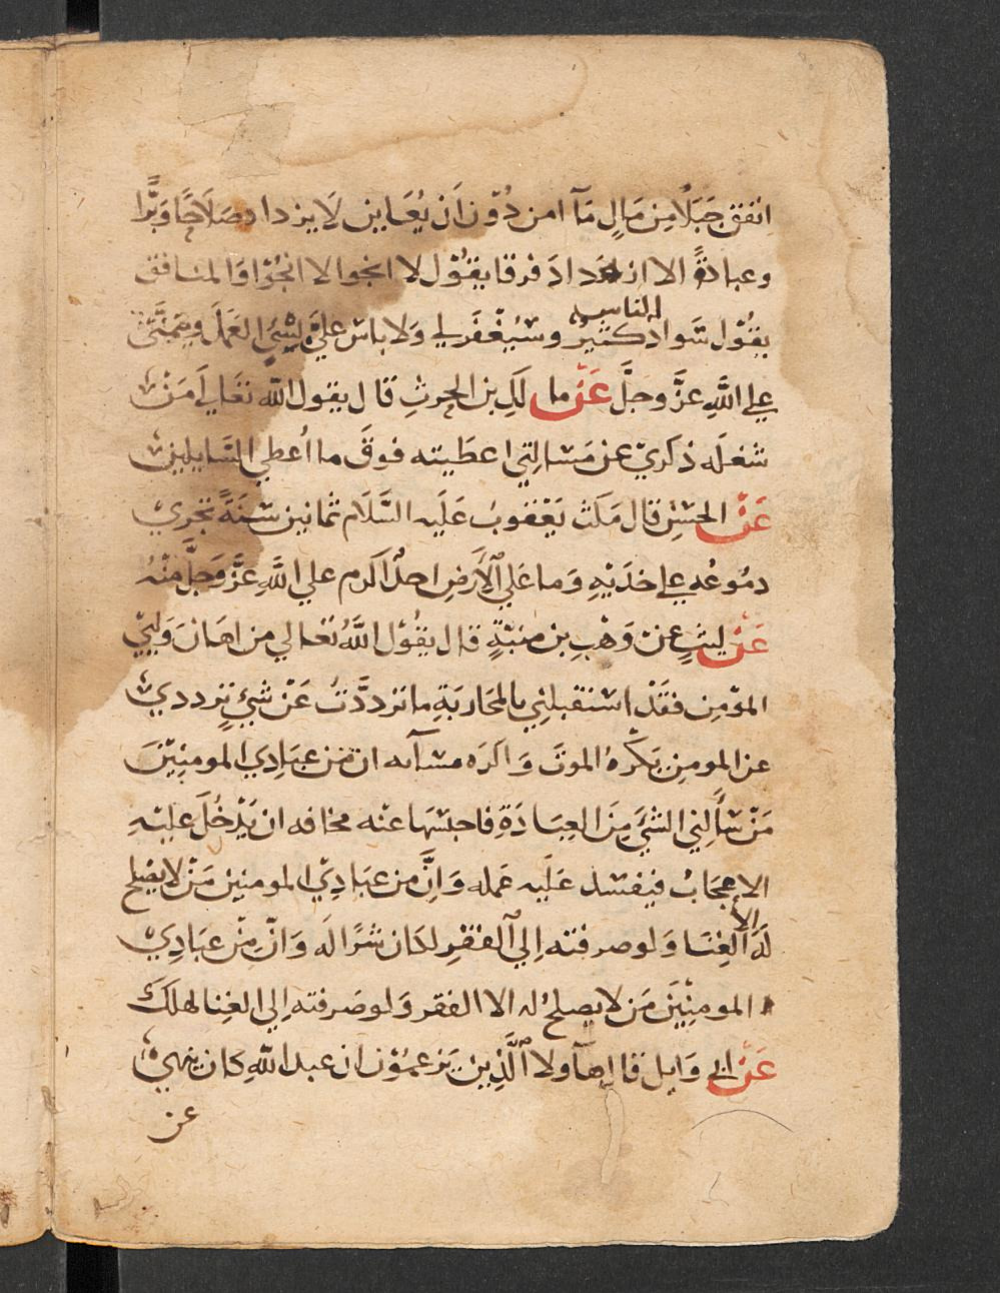 انفق جَبَلًا مِن مَالٍ مَآ امن دُوْن اَن يُعَاين لَا يزداد صَلَاحًا وَبرًّا
وعبادةً الا ازداد فرقا يقُوْل لا انجوا لا انجُوْا وَالمنافق
يقُوْل سَواد الناس كثير وسَيُغْفَر لي وَلا باس علي يُسِيُ العَمَل ويتمَنَّى
علي اللَّهِ عزَّ وجلَّ عَنْ مالك بن الحرثِ قال يقول اللَّه تعَالي مَنْ
شغلَه ذكريْ عن مَسالتي اعطَيته فوقَ ما اُعطي السَّايلين
عَنْ الحسَنِ قال مَكَثَ يَعْقوبُ عَلَيه السَّلَام ثمانين سَنَةً تجري
دمُوعُه علي خدَيْهِ وَما عَلي الْاَرضِ احدٌ اكرم علي اللَّهِ عَزَّ وَجلَّ منْهُ
عَنْ ليثٍ عن وَهْبِ بن منبّهٍ قال يقُوْل اللَّهُ تعَالي من اهَانَ وَلِيّيْ
المؤمِن فقَدْ استقبلنِي بالمحَاربَةِ ما تردّدَّتُ عَنْ شيْءٍ ترددي
عن المومِن يَكْرَهُ الموتَ وَاكرَه مساآته ان من عبَادِي المومنِيْنَ
مَنْ سَاَلني الشيَ مِنَ العِبَادَةِ فاحبسَهَا عنْه مخافه ان يَدْخُلَ عليْهِ
الاعجَابُ فيفسد عَلَيه عَمله وَاِنَّ من عبَادِيْ المومنين مَنْ لا يصْلح
لَهُ الا الغِنَا وَلو صرفته اِلي الفقْرِ لكَان شرًّا لَه وَانَّ مِنْ عبَادِيْ
المومنِيْنَ مَن لا يصلحُ له الا الفقر وَلو صَرفته اِلي الغِنا لهلكَ
عَنْ ابي وَايل قال هآولا الَّذِين يَزعمُوْن ان عبد اللَّهِ كان ينهيْ
عن